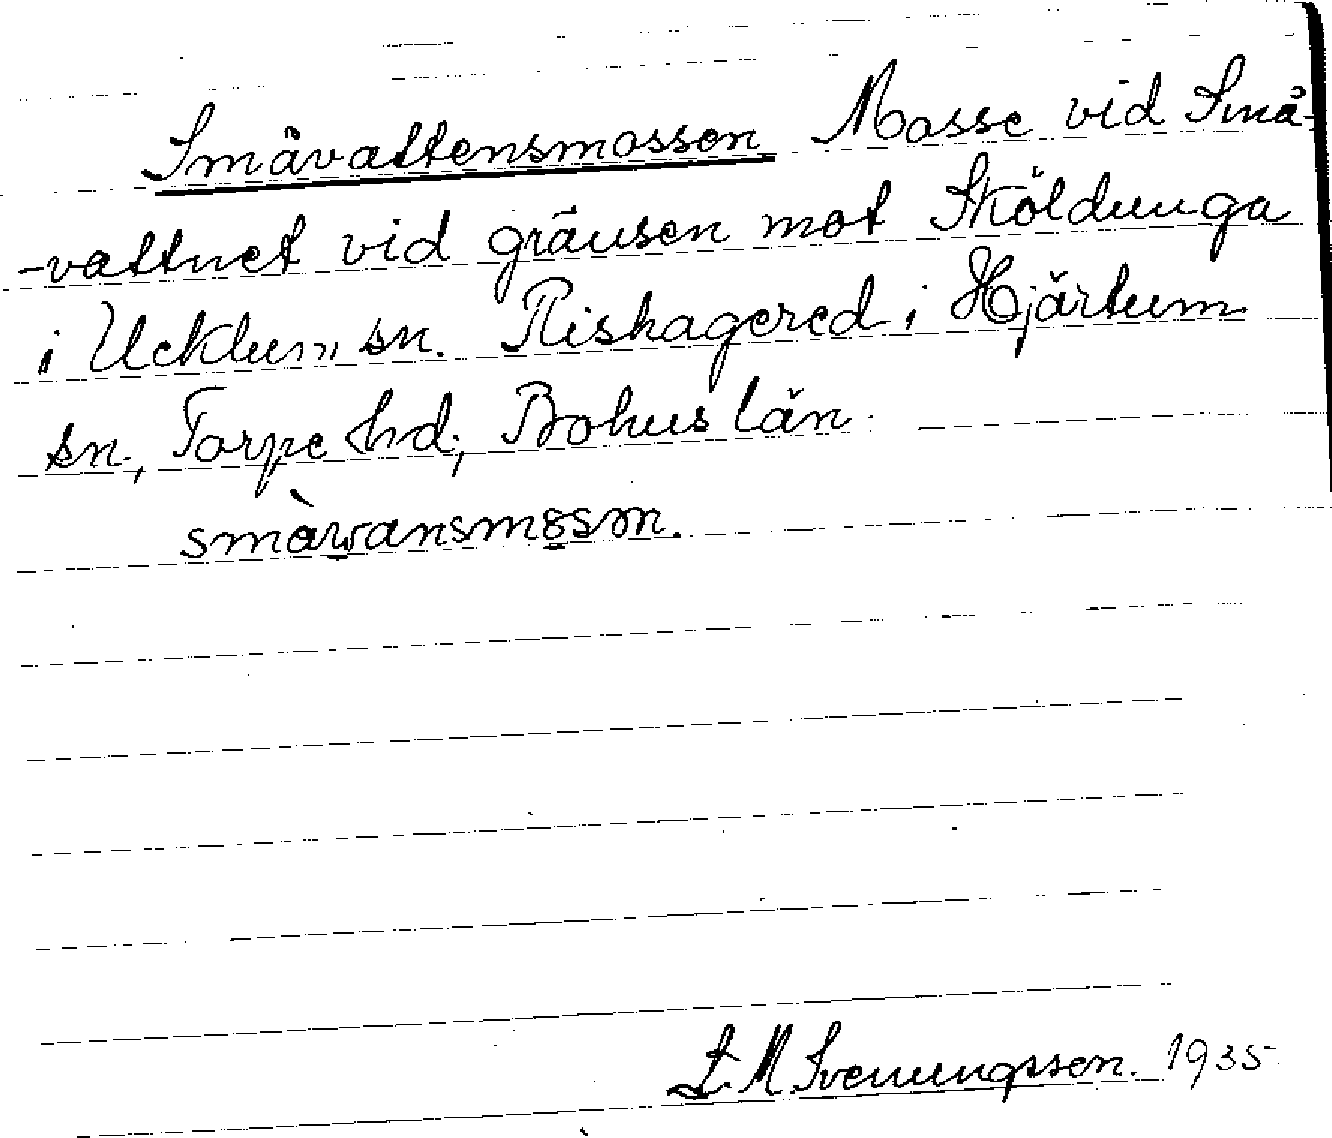 Småvattensmossen Mosse vid Små-
-vattnet vid gränsen mot Sköldunga
i Ucklum sn. Rishagered i Hjärtum
sn, Torpe hd, Bohuslän.
småvansmosm.
L. M. Svenungsson. 1935